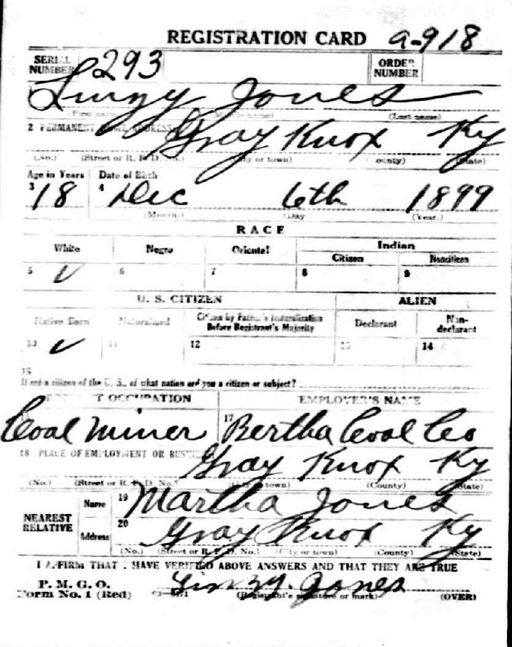 REGISTRATION CARD a-918
SERIAL NUMBER 293 ORDER NUMBER
Linzy Jones
(First name) (Middle name) (Last name)
2 PERMANENT HOME ADDRESS: Gray Knox Ky
(No.) (Street or R. F. D. No.) (City or town) (County) (State)
Age in Years Date of Birth
3 18 4 Dec 6th 1899
(Month.) (Day (Year.)
RACE
White Negro Oriental Indian
Citizen Noncitizen
5 ✓ 6 7 8 9
U. S. CITIZEN ALIEN
Native Born Naturalized Citizen by Father's Naturalization Before Registrant's Majority Declarant Non-declarant
10 ✓ 11 12 13 14
15
If not a citizen of the U. S., of what nation are you a citizen or subject?
PRESENT OCCUPATION EMPLOYER'S NAME
Coal Miner 17 Bertha Coal Co
18 PLACE OF EMPLOYMENT OR BUSINESS Gray Knox Ky
(No.) (Street or R. F. D. No.) (City or town) (County) (State)
NEAREST RELATIVE Name 19 Martha Jones
Address 20 Gray Knox Ky
(No.) (Street or R. F. D. No.) (City or town) (County) (State)
I AFFIRM THAT I HAVE VERIFIED ABOVE ANSWERS AND THAT THEY ARE TRUE
P. M. G. O.
Form No. 1 (Red) Linzy Jones
(Registrant's signature or mark) (OVER)